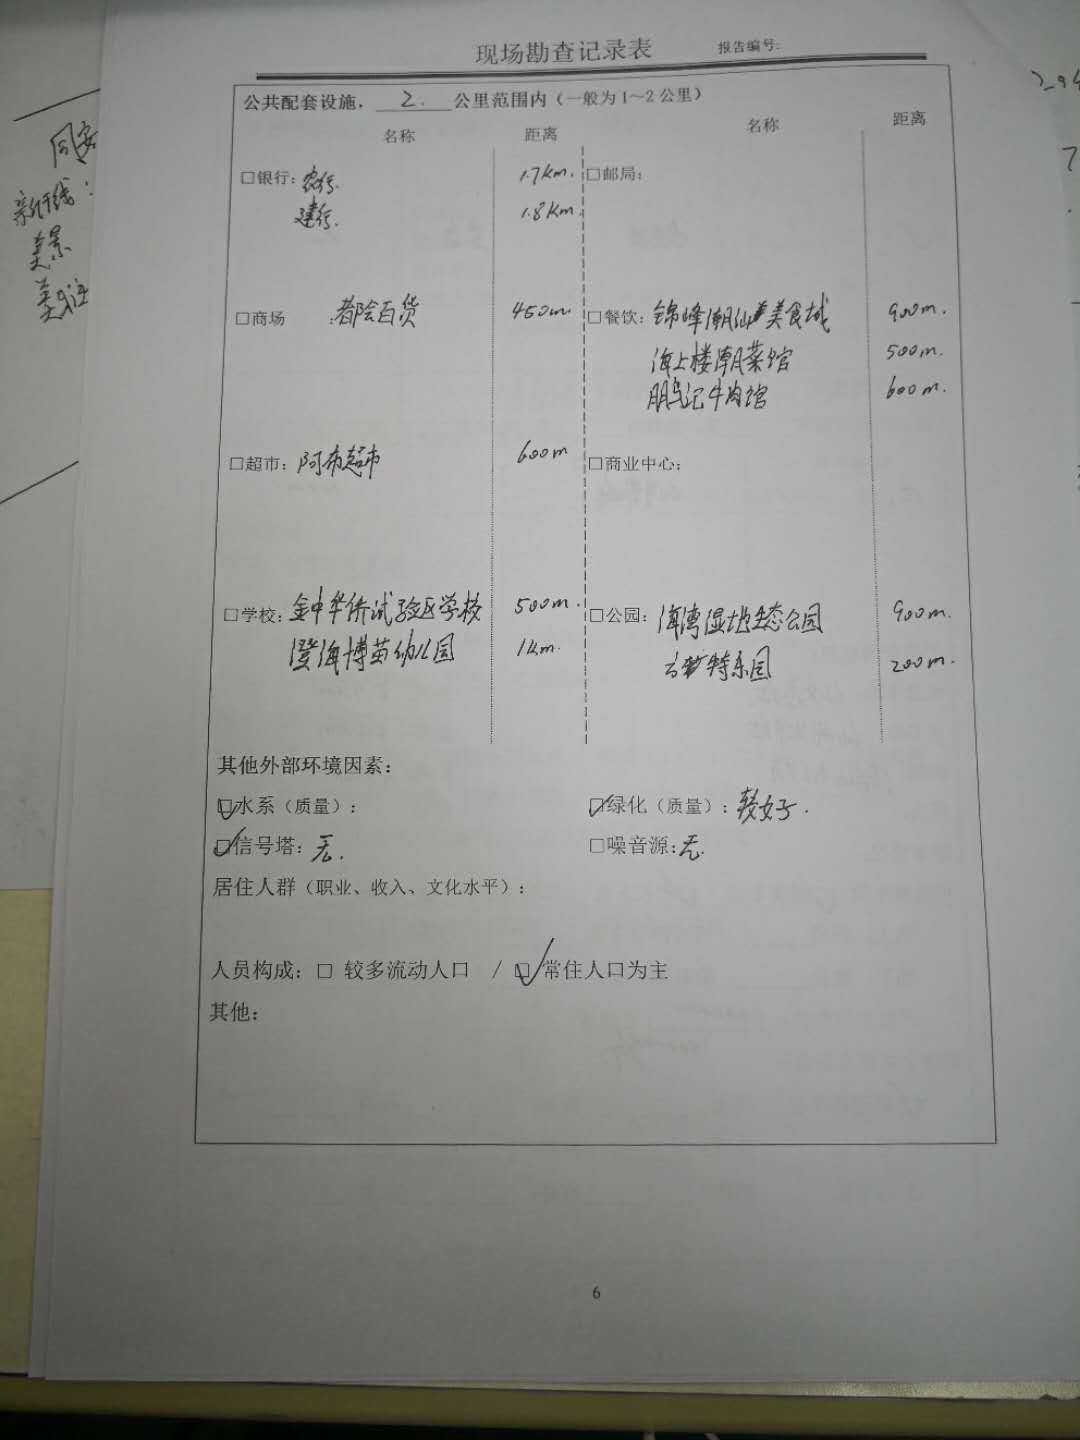 现场勘查记录表 报告编号:
公共配套设施， 2. 公里范围内（一般为1~2公里）
名称 距离 名称 距离
□银行: 农行. 1.7km. □邮局:
建行. 1.8km.
□商场 : 都会百货 450m. □餐饮: 锦峰潮汕美食城 900m.
海上楼潮菜馆 500m.
牛肉馆 600m.
□超市: 阿布超市 600m □商业中心:
□学校: 金中华侨试验区学校 500m. □公园: 海湾湿地生态公园 900m.
澄海博苗幼儿园 1km. 方特乐园 200m.
其他外部环境因素:
☑水系（质量）: ☑绿化（质量）: 较好.
☑信号塔: 无. □噪音源: 无.
居住人群（职业、收入、文化水平）:
人员构成: □ 较多流动人口 / ☑ 常住人口为主
其他:
6
同安
美景